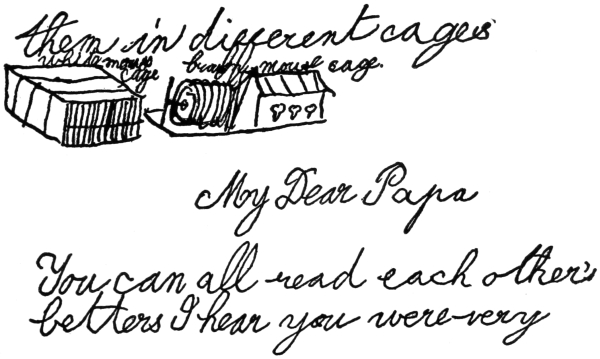 them in different cages
white mouse brown mouse cage.
cage
My Dear Papa
You can all read each other's
letters I hear you were very